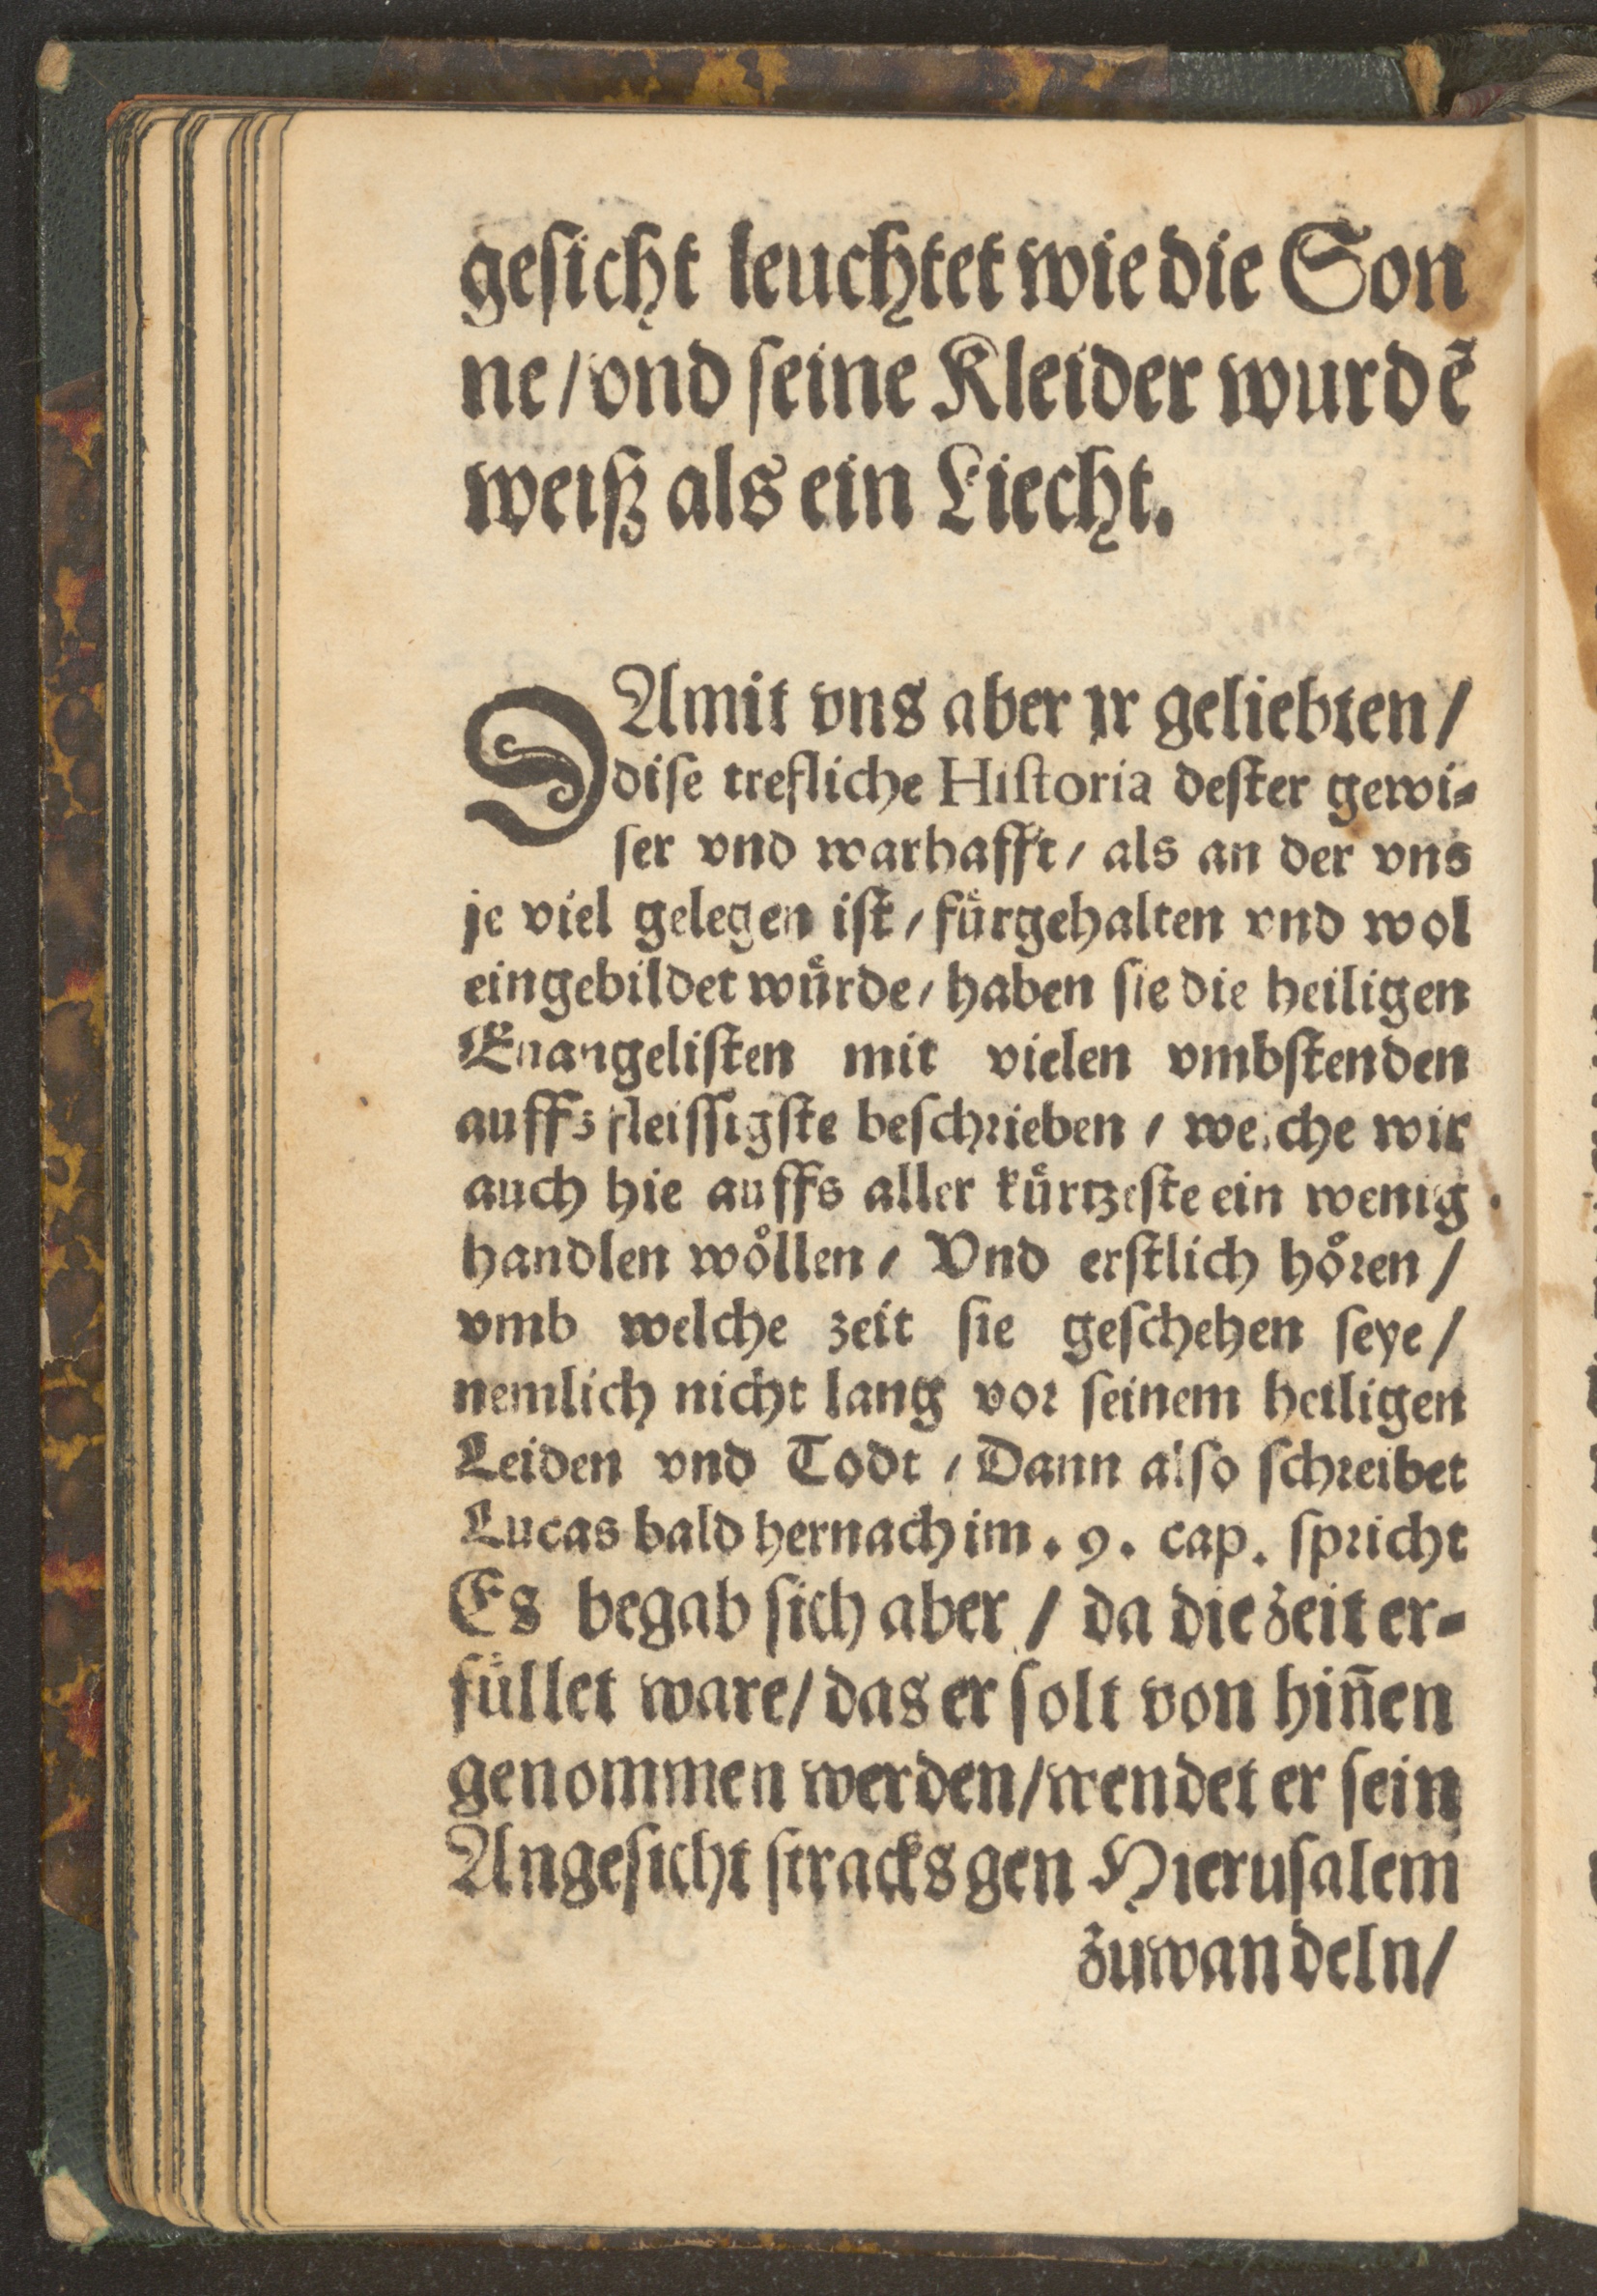 gesicht leuchtet wie die Son
ne / vnd seine Kleider wurdẽ
weiß als ein Liecht.
DAmit vns aber jr geliebten /
dise trefliche Historia dester gewi-
ser vnd warhafft / als an der vns
je viel gelegen ist / fürgehalten vnd wol
eingebildet würde / haben sie die heiligen
Euangelisten mit vielen vmbstenden
auffs fleissigste beschrieben / welche wir
auch hie auffs aller kürtzeste ein wenig
handlen wöllen / Vnd erstlich hören /
vmb welche zeit sie geschehen seye /
nemlich nicht lang vor seinem heiligen
Leiden vnd Todt / Dann also schreibet
Lucas bald hernach im . 9 . cap . spricht
Es begab sich aber / da die zeit er-
füllet ware / das er solt von hiñen
genommen werden / wendet er sein
Angesicht stracks gen Hierusalem
zuwandeln /